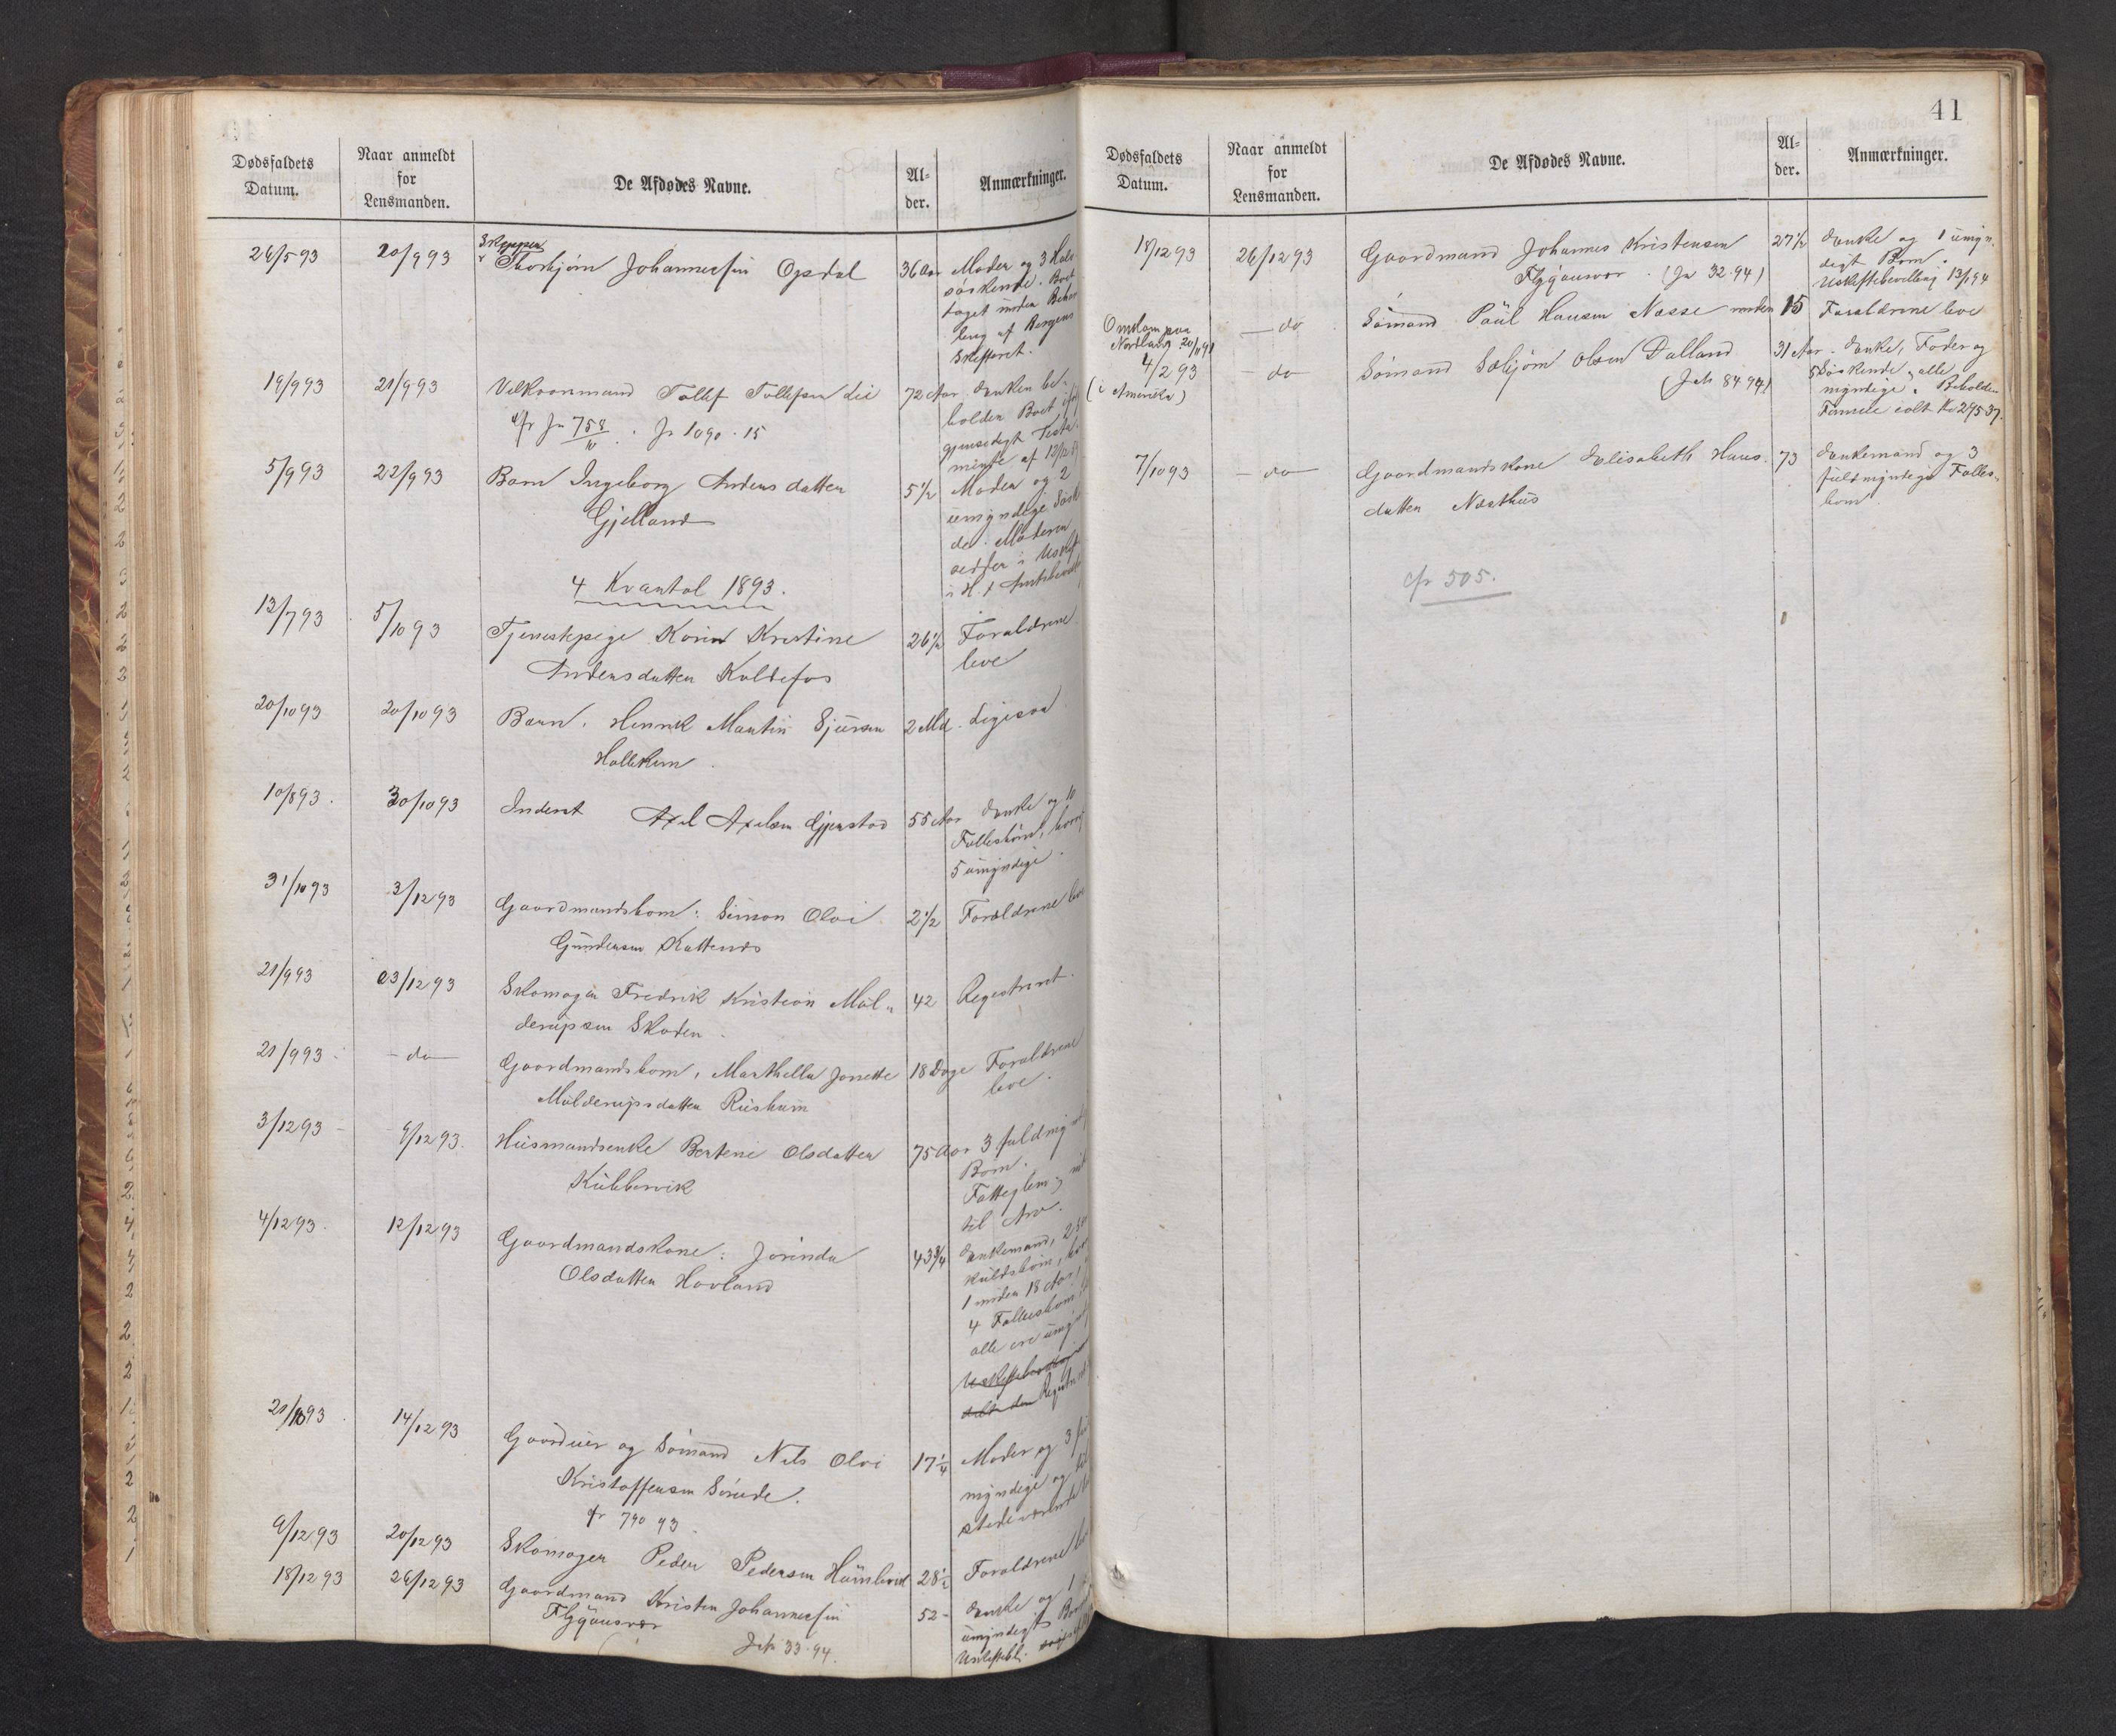 Dødsfaldets
Datum.
Naar anmeldt
for
Lensmanden.
De Afdødes Navne.
Al-
der.
Anmærkninger.
26/5 93
20/9 93
Skipper
Thorbjørn Johannessen Opsdal
36 Aar
Moder og 3 Halv
søskende. Boet
taget under Behand
ling af Bergens
Skifteret.
19/9 93
21/9 93
Velkaarmand Tollef Tollefsen Lie
72 Aar
Enken be-
holder Boet
gjensidigt Testa-
mente af 12/12
cfr Jn 758
Jr 1090 . 15
5/9 93
22/9 93
Barn Ingeborg Andersdatter
Gjelland
5 1/2
Moder og 2
umyndige
Moderen
sidder i Uskift
4 Kvartal 1893.
12/7 93
5/10 93
Tjenestepige Karin Kristine
Andersdatter Koldefos
26 1/2
Forældrene
leve
20/10 93
20/10 93
Barn, Henrik Martin Sjursen
Hallekem
2 Md.
Ligesaa
10/8 93.
30/10 93
Inderst Axel Axelsen Gjerstad
55 Aar
Enke og 10
Fællesbørn,
5 umyndige.
31/10 93
3/12 93
Gaardmandsbarn: Simon Olai
Gundersen Kattenes
2 1/2
Forældrene leve
21/9 93
23/12 93
Skomager Fredrik Kristian Mul-
derupsen Skaden.
42
Registreret.
21/9 93
- do -
Gaardmandsbarn, Marthella Jonette
Mulderupsdatter Rusham
18 Dage
Forældrene
leve.
3/12 93
9/12 93.
Husmandsenke Bertine Olsdatter
Kubbervik
75 Aar
3 fuldmynd
Børn.
Fattiglem;
til Arv.
4/12 93.
12/12 93
Gaardmandskone: Jorinda
Olsdatter Hovland
43 3/4
Enkemand, 2
kuldsbørn,
1 under 18 Aar,
4 Fællesbørn
alle ere umynd
Registreret
21/10 93
14/12 93
Gaarduer og Sømand Nils Olai
Kristoffersen Sørude.
cfr 790 93
17 1/4
Moder og 3
myndige og
stedeværende
9/12 93
20/12 93
Skomager Peder Pedersen
28 1/2
Forældrene leve
18/12 93
26/12 93
Gaardmand Kristen Johannessen
Flygansvær
Jn 33.94.
52 -
Enke og 1
umyndigt Barn
Uskiftebl.
41
Dødsfaldets
Datum.
Naar anmeldt
for
Lensmanden.
De Afdødes Navne.
Al-
der.
Anmærkninger.
18/12 93
26/12 93
Gaardmand Johannes Kristensen
Flygansvær. (Jn 32.94)
27 1/2
Enke og 1 umyn-
digt Barn.
Uskiftebevilling 13/1 94
Omkom paa
Nordland 20/11 91
- do
Sømand Paul Hansen Næsse
15
Forældrene leve
4/2 93
(i Amerika)
- do
Sømand Sæbjørn Olsen Dalland
(Jn 84 94)
31 Aar.
Enke, Fader og
5 Søskende, alle
myndige. Beholden
Formue ialt Kr 295 37.
7/10 93
- do -
Gaardmandskone Elisabeth Hans-
datter Næsthus
73
Enkemand og 3
fuldmyndige Fælles-
børn
cfr 505.